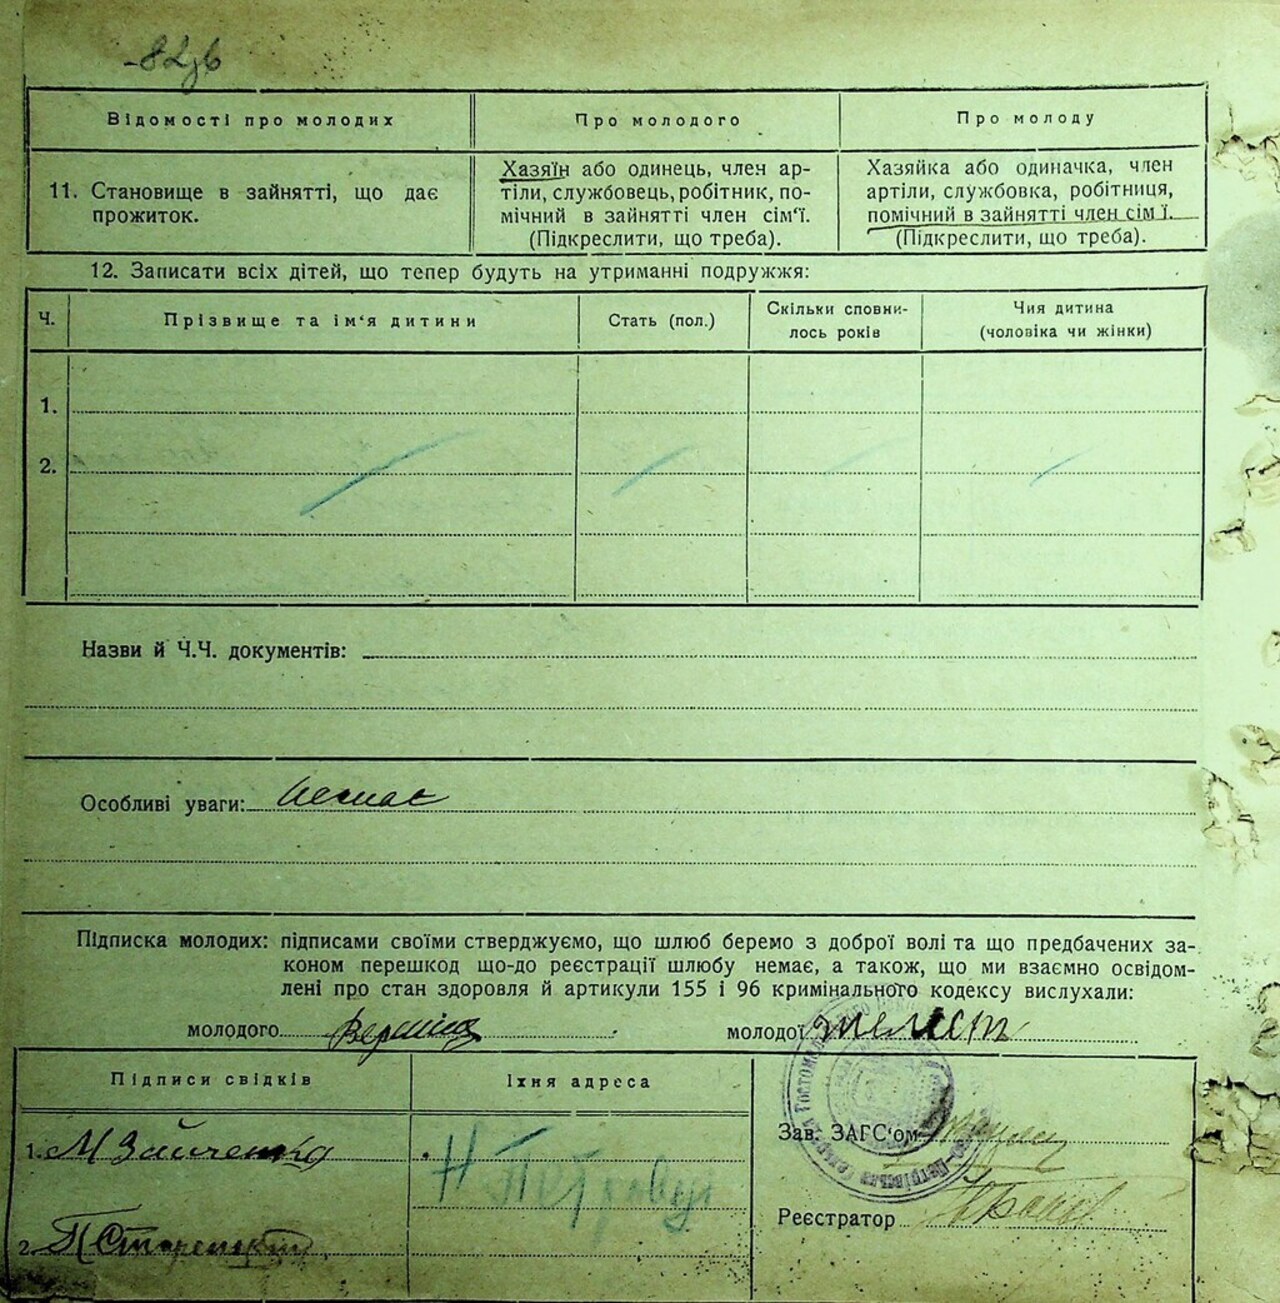 Відомості про молодих
Про молодого
Про молоду
11. Становище в зайнятті, що дає
прожиток.
Хазяїн або одинець, член ар-
тіли, службовець, робітник, по-
мічний в зайнятті член сім'ї.
(Підкреслити, що треба).
Хазяйка або одиначка, член
артіли, службовка, робітниця,
помічний в зайнятті член сім'ї.
(Підкреслити, що треба).
12. Записати всіх дітей, що тепер будуть на утриманні подружжя:
Ч.
Прізвище та ім'я дитини
Стать (пол.)
Скільки сповни-
лось років
Чия дитина
(чоловіка чи жінки)
1.
2.
Назви й Ч.Ч. документів:
Особливі уваги: немає
Підписка молодих: підписами своїми стверджуємо, що шлюб беремо з доброї волі та що предбачених за-
коном перешкод що-до реєстрації шлюбу немає, а також, що ми взаємно освідом-
лені про стан здоровля й артикули 155 і 96 кримінального кодексу вислухали:
молодого
молодої
Підписи свідків
Їхня адреса
1. М Зайченко
Н Петрівці
Зав. ЗАГС'ом
2.
Реєстратор